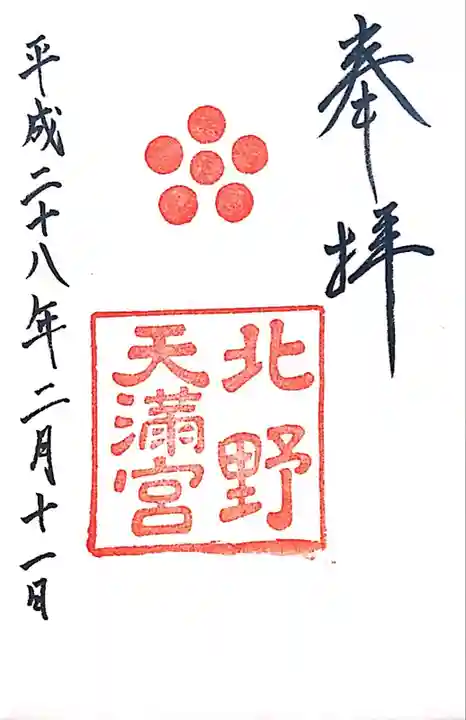 奉拝
北野
天満宮
平成二十八年二月十一日